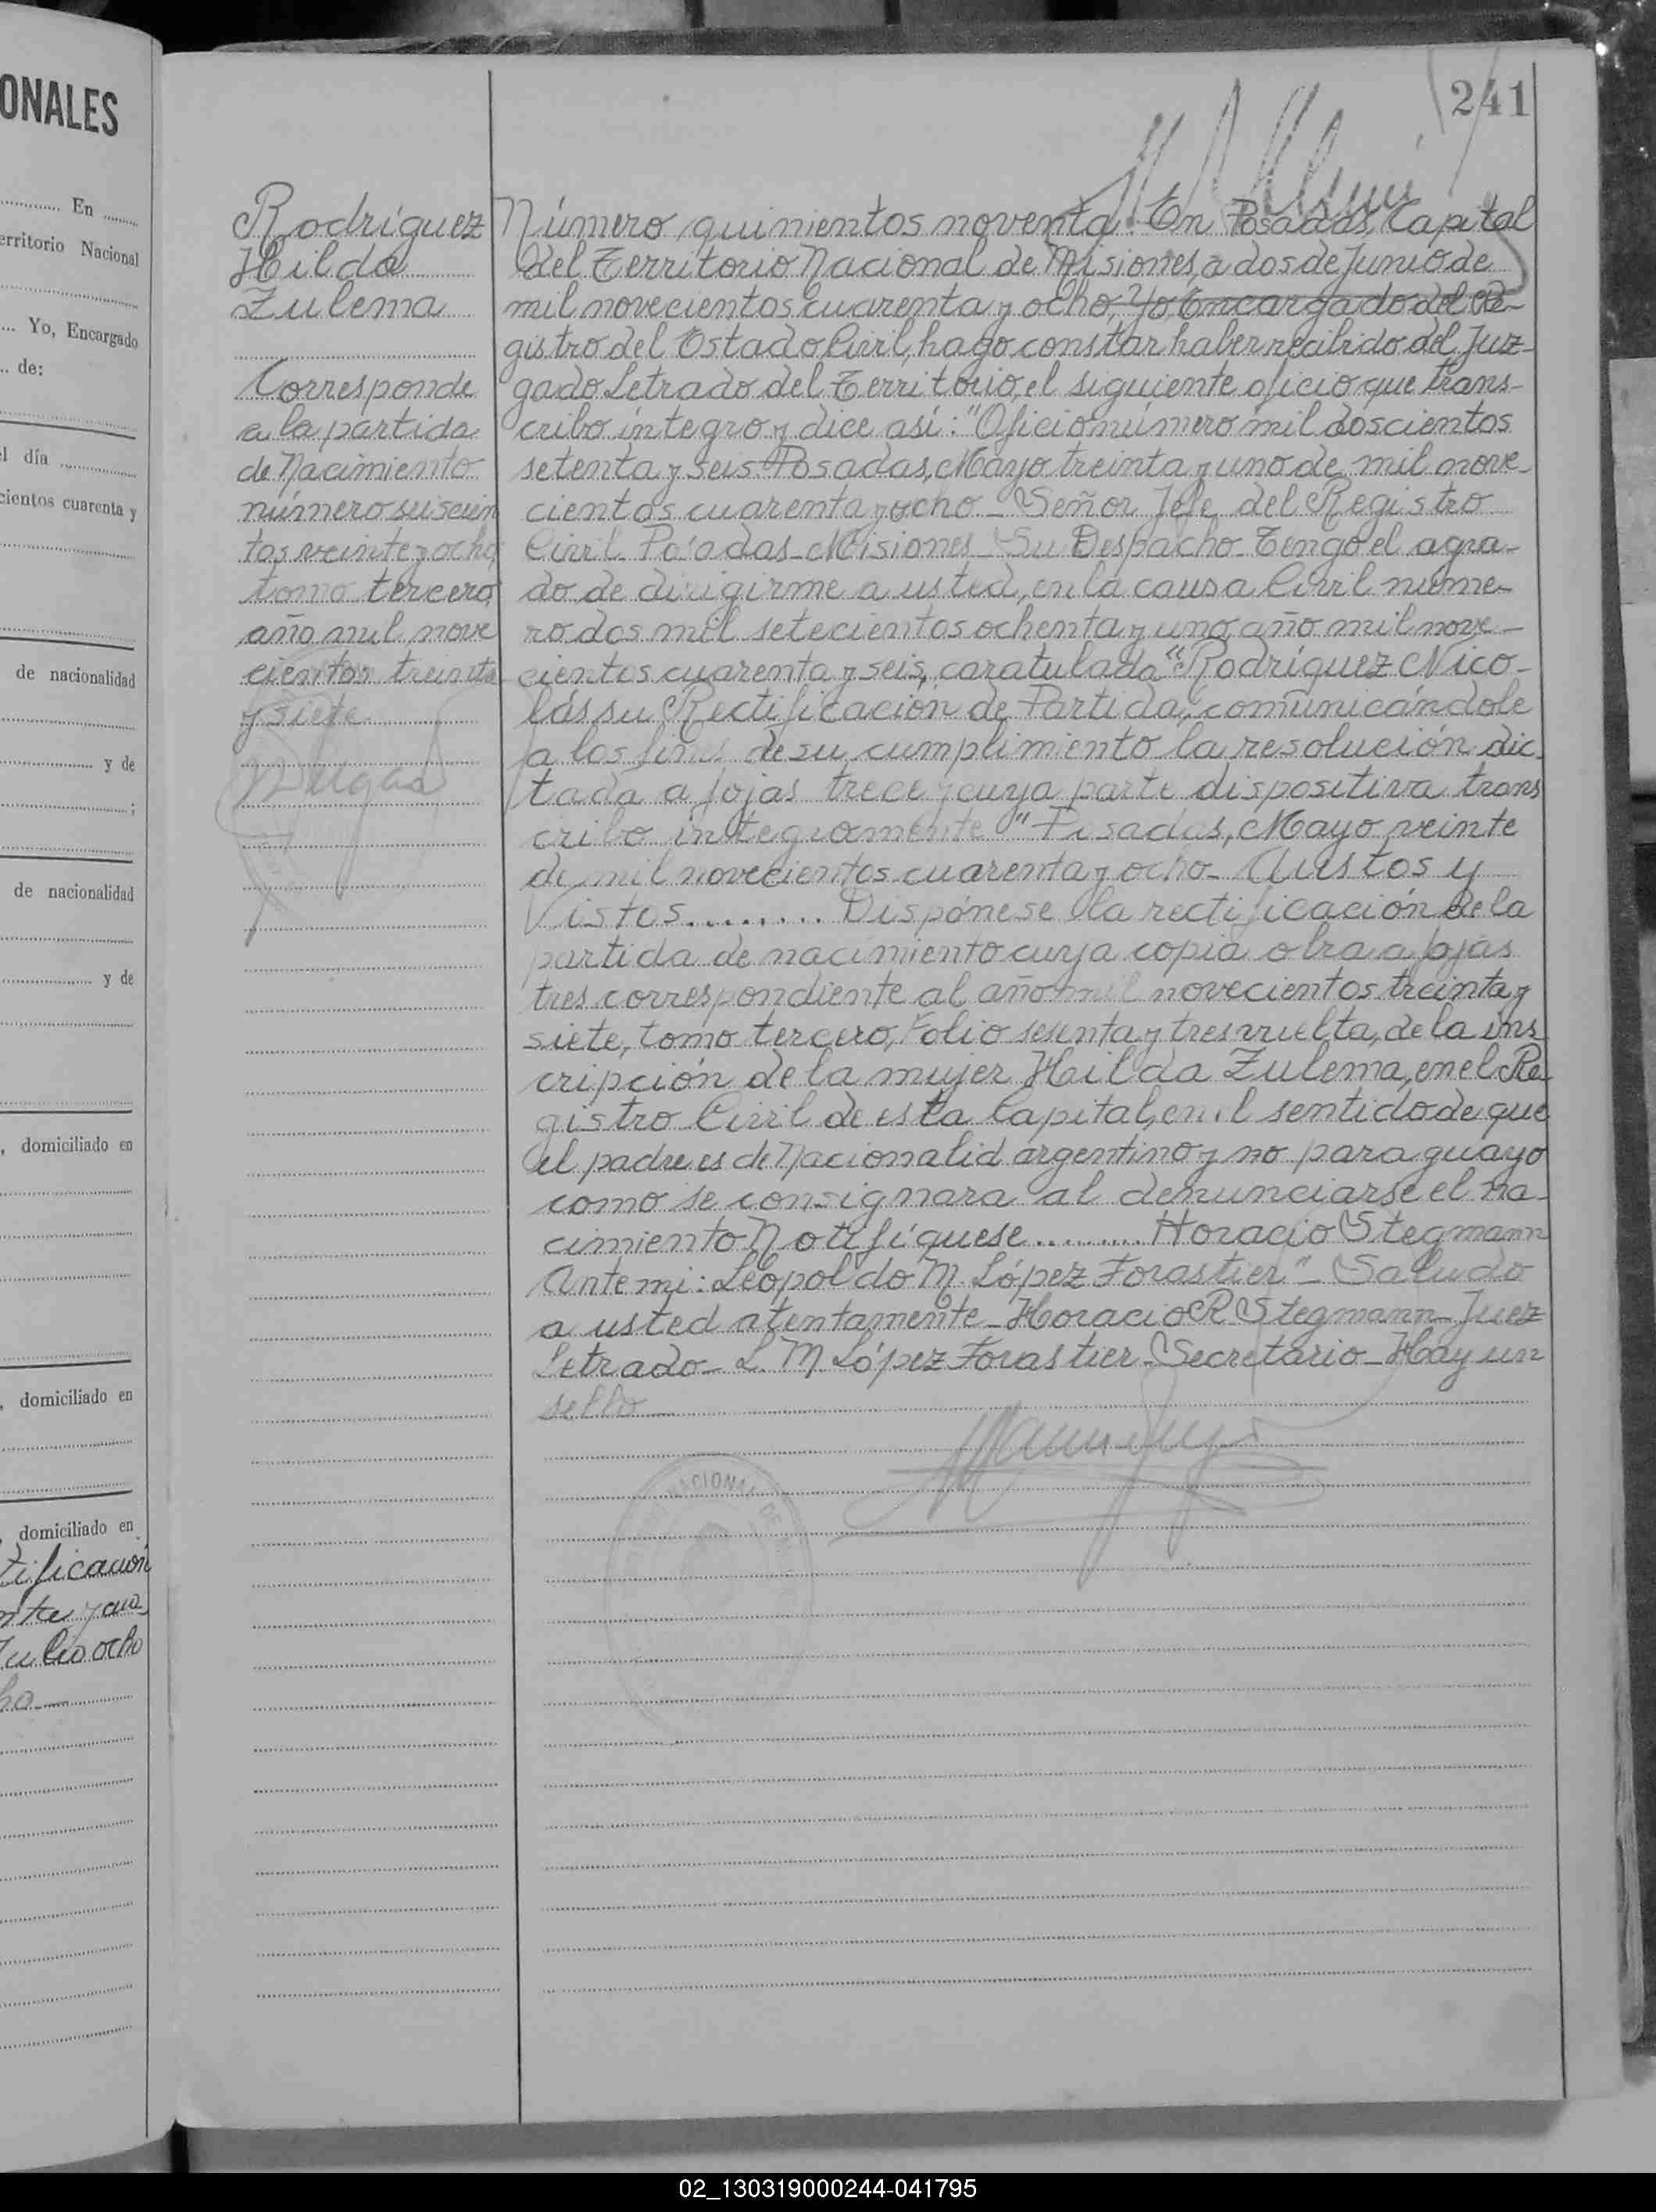 ONALES
En
erritorio Nacional
Yo, Encargado
de:
el día
cientos cuarenta y
de nacionalidad
y de
;
de nacionalidad
y de
, domiciliado en
, domiciliado en
, domiciliado en
tificación
Julio ocho
241
Rodríguez
Hilda
Zulema
Corresponde
a la partida
de Nacimiento
número seiscien
tos veinte y ocho,
tomo tercero,
año mil nove
cientos treinta
y siete.
Número quinientos noventa. En Posadas, Capital
del Territorio Nacional de Misiones, a dos de Junio de
mil novecientos cuarenta y ocho, Yo, Encargado del Re-
gistro del Estado Civil, hago constar haber recibido del Juz-
gado Letrado del Territorio, el siguiente oficio que trans-
cribo íntegro y dice así: "Oficio número mil doscientos
setenta y seis. Posadas, Mayo treinta y uno de mil nove-
cientos cuarenta y ocho - Señor Jefe del Registro
Civil - Posadas - Misiones - Su Despacho - Tengo el agra-
do de dirigirme a usted, en la causa Civil núme-
ro dos mil setecientos ochenta y uno, año mil nove-
cientos cuarenta y seis, caratulada "Rodríguez Nico-
lás su Rectificación de Partida, comunicándole
a los fines de su cumplimiento la resolución dic
tada a fojas trece y cuya parte dispositiva trans
cribo íntegramente "Posadas, Mayo veinte
de mil novecientos cuarenta y ocho - Autos y
Vistos........ Dispónese la rectificación de la
partida de nacimiento cuya copia obra a fojas
tres correspondiente al año mil novecientos treinta y
siete, tomo tercero, Folio sesenta y tres vuelta, de la ins
cripción de la mujer Hilda Zulema, en el Re
gistro Civil de esta Capital, en el sentido de que
el padre es de Nacionalid argentino y no paraguayo
como se consignara al denunciarse el na-
cimiento Notifíquese......... Horacio Stegmann
Ante mi: Leopoldo M. López Forastier" - Saludo
a usted atentamente - Horacio R Stegmann - Juez
Letrado - L. M. López Forastier - Secretario - Hay un
sello
NACIONAL DE
02_130319000244-041795